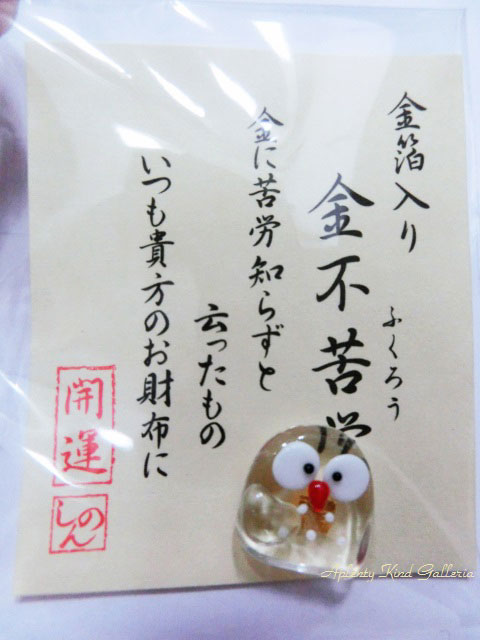 金箔入り
ふくろう
金不苦労
金に苦労知らずと
云ったもの
いつも貴方のお財布に
開運
しのん
Aplenty Kind Galleria